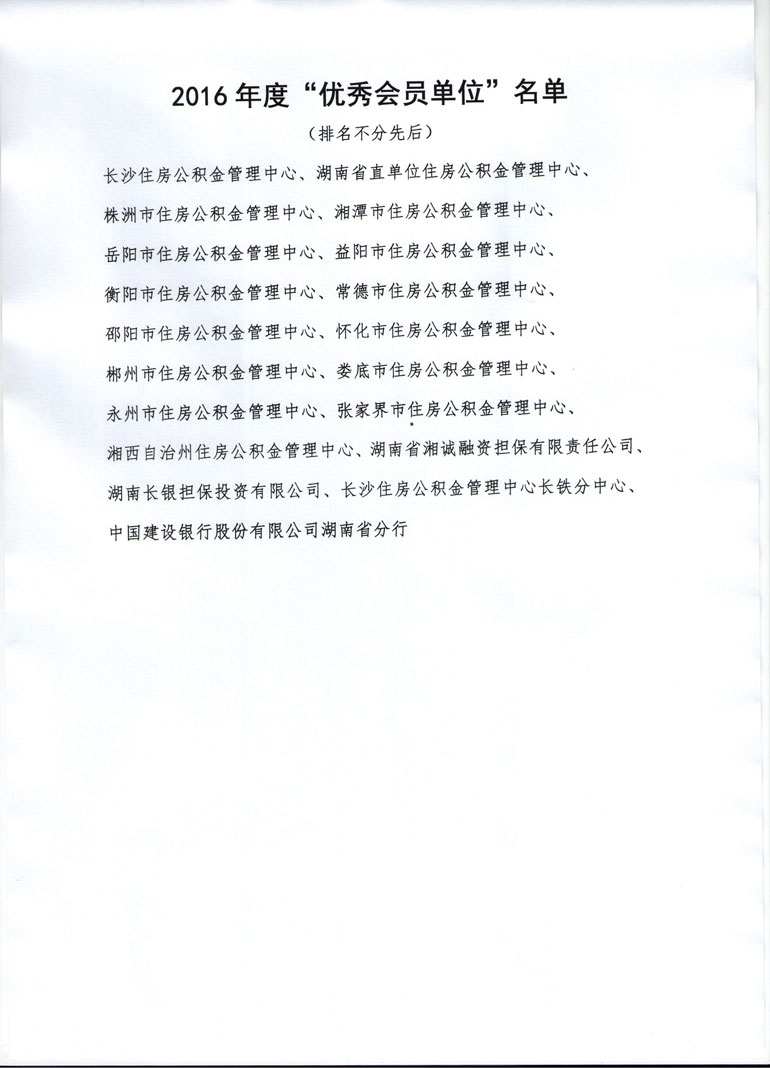 2016年度“优秀会员单位”名单
（排名不分先后）
长沙住房公积金管理中心、湖南省直单位住房公积金管理中心、
株洲市住房公积金管理中心、湘潭市住房公积金管理中心、
岳阳市住房公积金管理中心、益阳市住房公积金管理中心、
衡阳市住房公积金管理中心、常德市住房公积金管理中心、
邵阳市住房公积金管理中心、怀化市住房公积金管理中心、
郴州市住房公积金管理中心、娄底市住房公积金管理中心、
永州市住房公积金管理中心、张家界市住房公积金管理中心、
湘西自治州住房公积金管理中心、湖南省湘诚融资担保有限责任公司、
湖南长银担保投资有限公司、长沙住房公积金管理中心长铁分中心、
中国建设银行股份有限公司湖南省分行